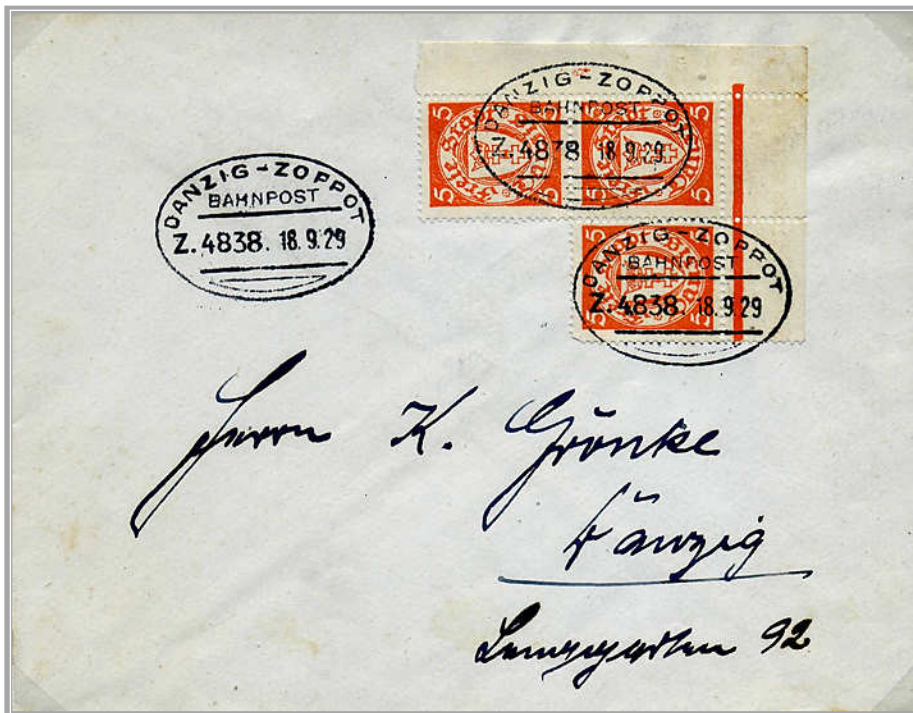 DANZIG-ZOPPOT
BAHNPOST
Z. 4838 18.9.29
5 5 5 5
DANZIG-ZOPPOT
BAHNPOST
Z. 4838. 18.9.29
5 5
DANZIG-ZOPPOT
BAHNPOST
Z. 4838. 18.9.29
Herrn K. Grönke
Danzig
92